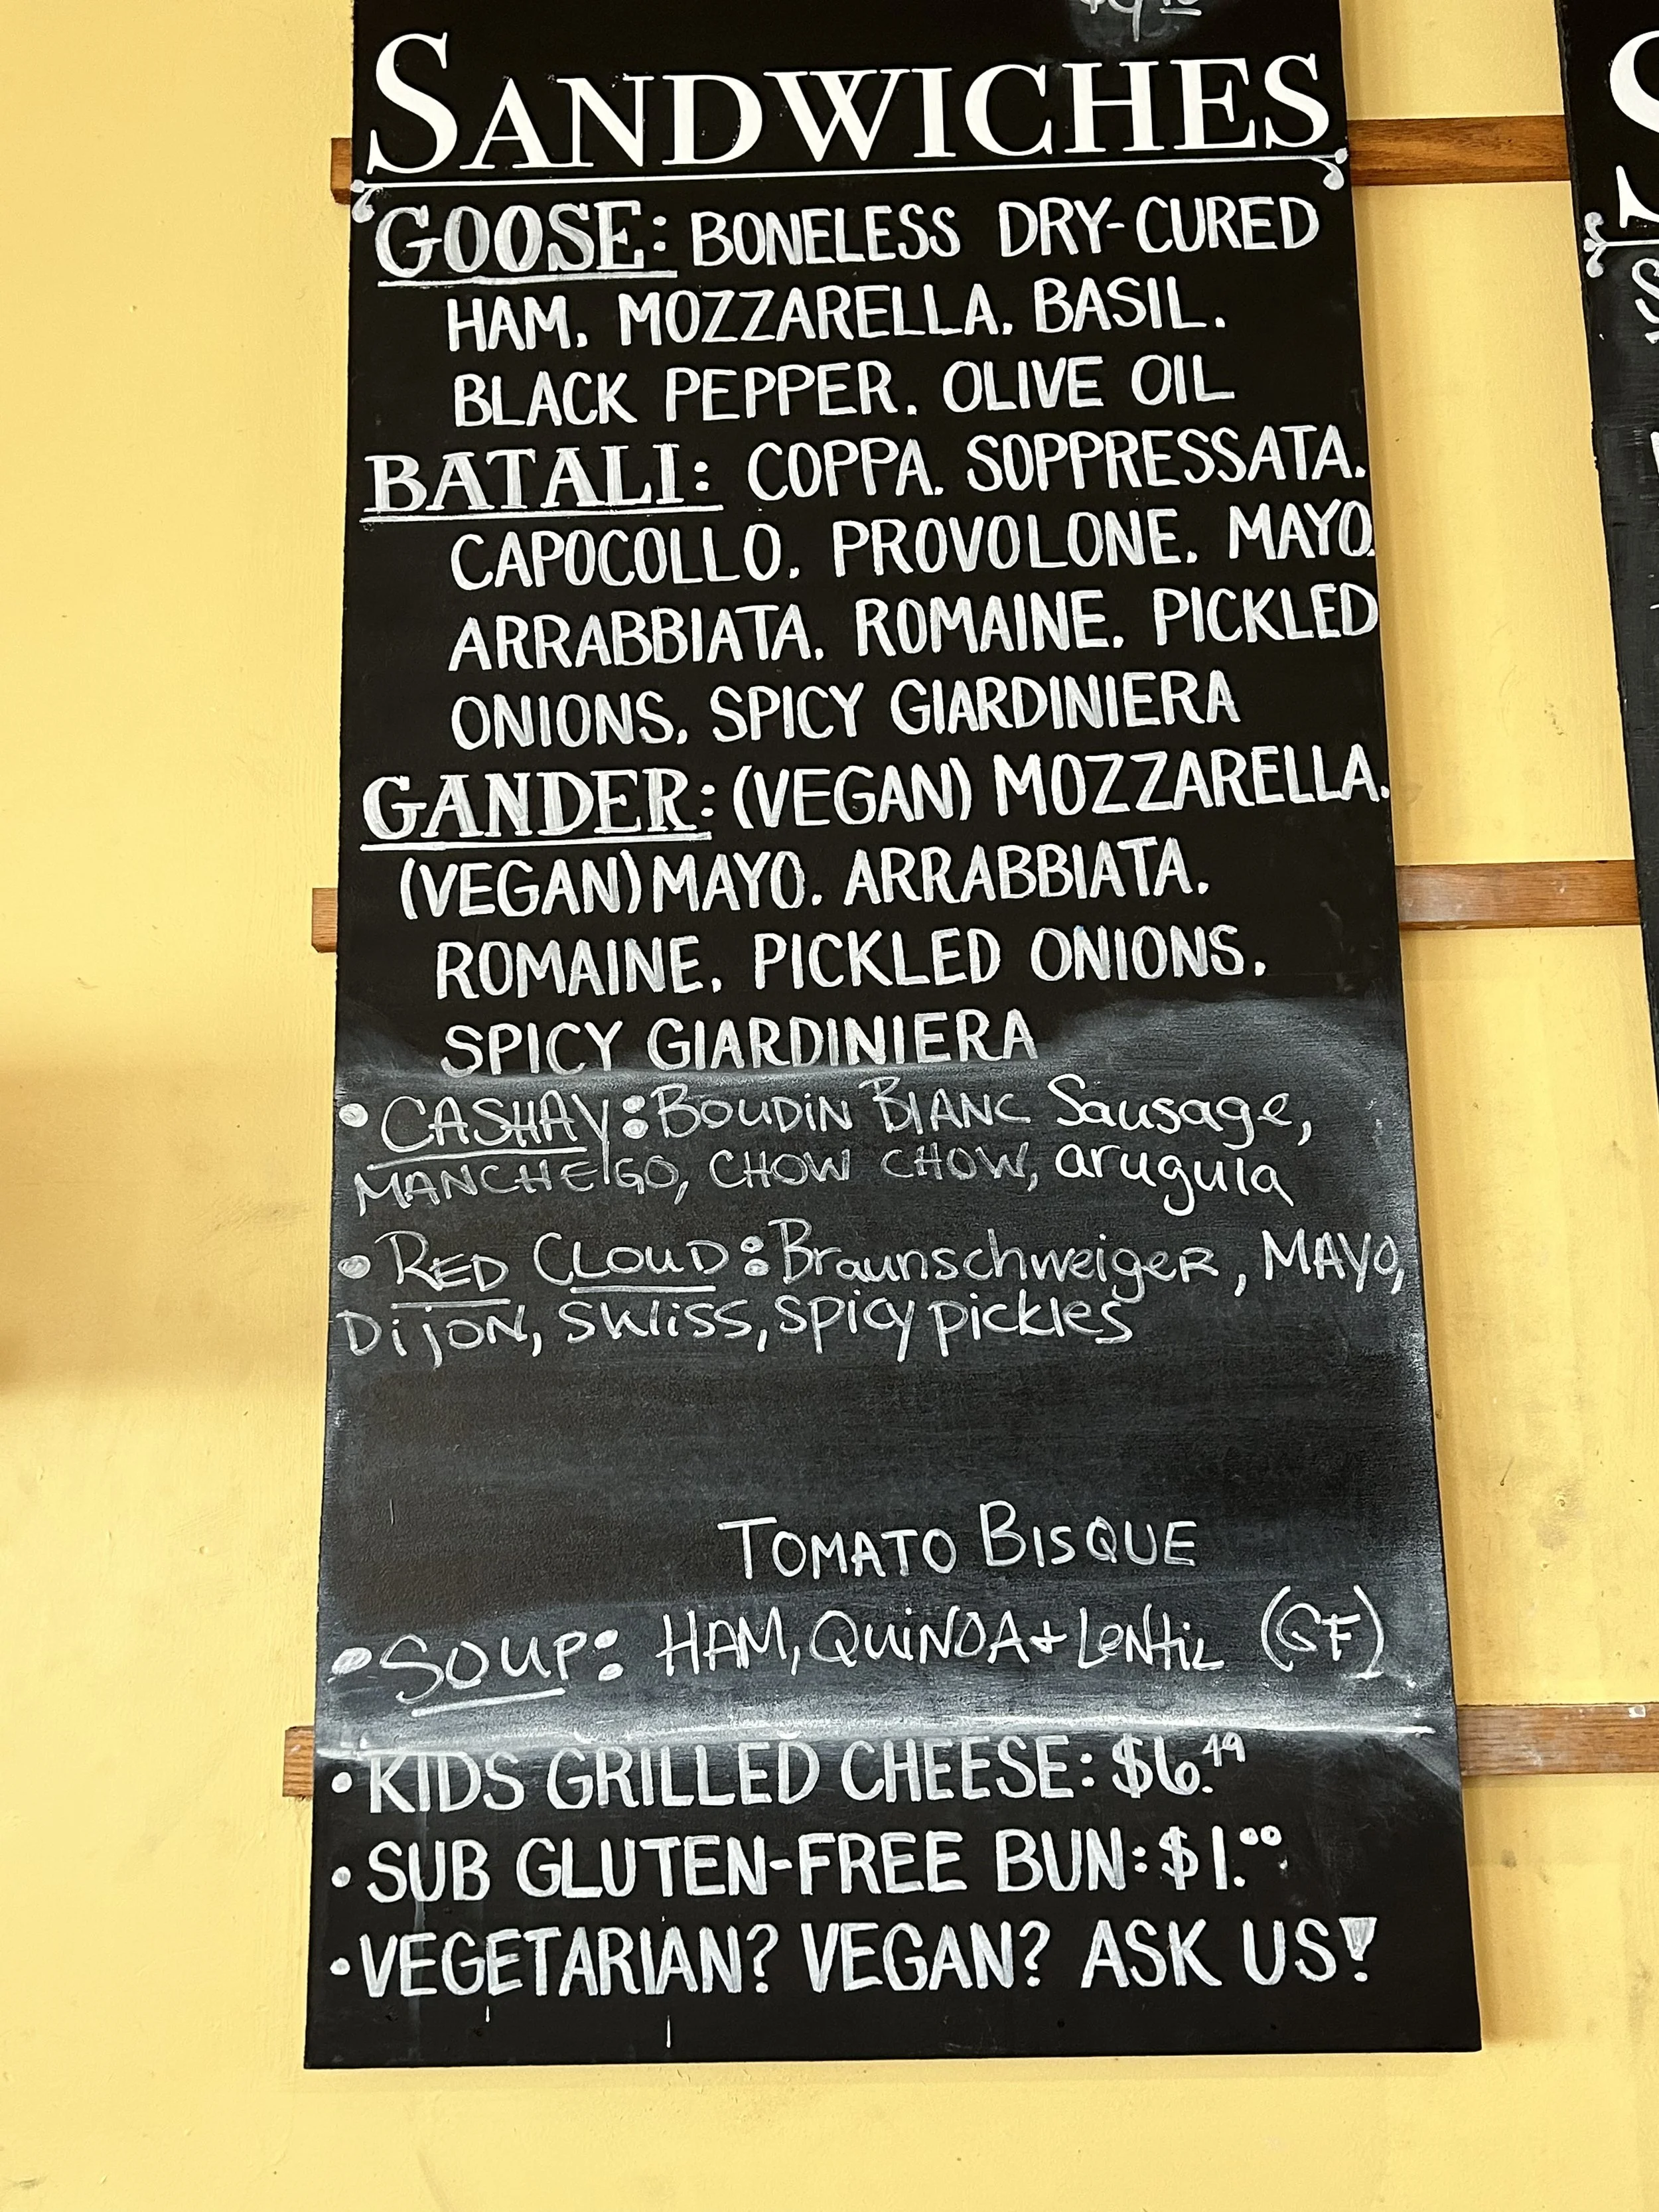 SANDWICHES
GOOSE: BONELESS DRY-CURED
HAM, MOZZARELLA, BASIL,
BLACK PEPPER, OLIVE OIL
BATALI: COPPA, SOPPRESSATA,
CAPOCOLLO, PROVOLONE, MAYO,
ARRABBIATA, ROMAINE, PICKLED
ONIONS, SPICY GIARDINIERA
GANDER: (VEGAN) MOZZARELLA,
(VEGAN) MAYO, ARRABBIATA,
ROMAINE, PICKLED ONIONS,
SPICY GIARDINIERA
• CASHAY: BOUDIN BLANC Sausage,
MANCHEGO, CHOW CHOW, arugula
• RED CLOUD: BraunschweigeR, MAYO,
DijON, SWiSS, SPicy pickles
TOMATO BISQUE
• SOUP: HAM, QUINOA + LeNtiL (GF)
• KIDS GRILLED CHEESE: $6.49
• SUB GLUTEN-FREE BUN: $1.00
• VEGETARIAN? VEGAN? ASK US!